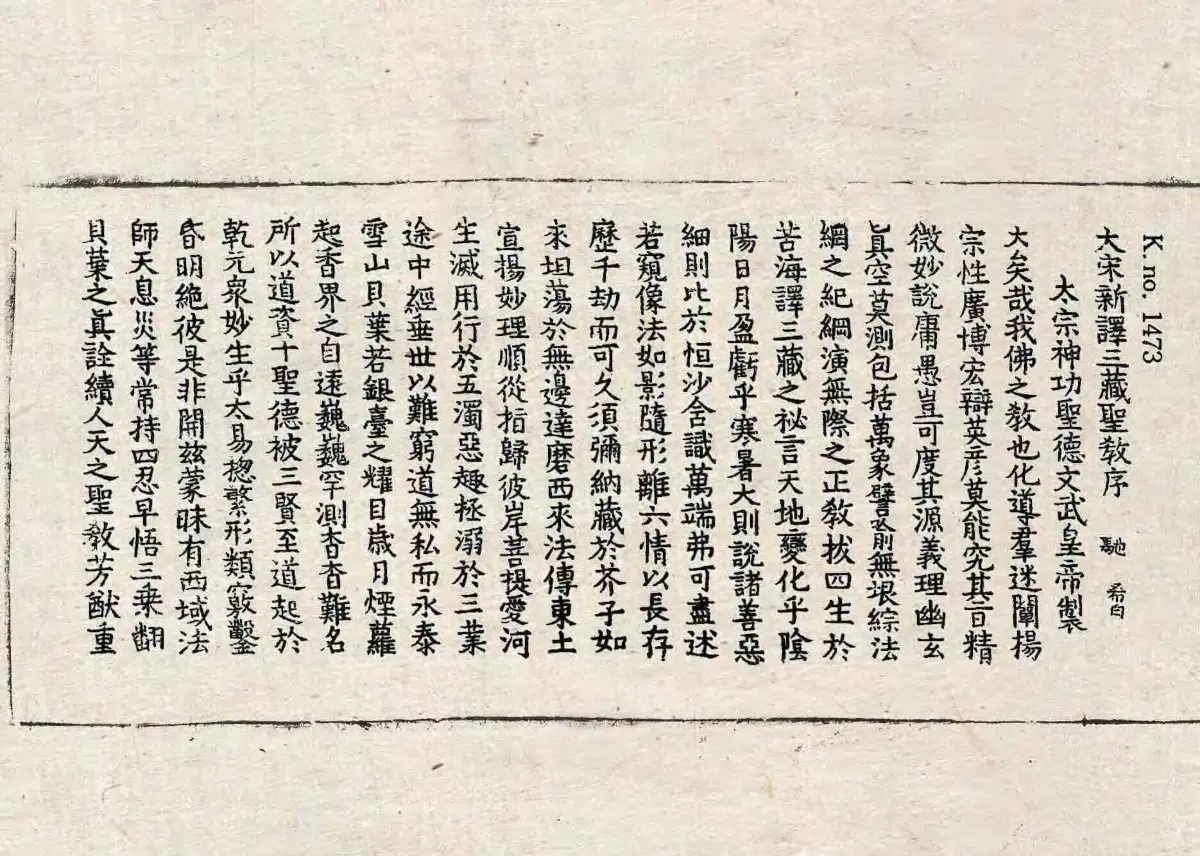 K. no. 1473
大宋新譯三藏聖教序 馳 希白
太宗神功聖德文武皇帝製
大矣哉我佛之教也化導羣迷闡揚
宗性廣博宏辯英彦莫能究其旨精
微妙說庸愚豈可度其源義理幽玄
眞空莫測包括萬象譬喻無垠綜法
綱之紀綱演無際之正教拔四生於
苦海譯三藏之祕言天地變化乎陰
陽日月盈虧乎寒暑大則說諸善惡
細則比於恒沙含識萬端弗可盡述
若窺像法如影隨形離六情以長存
歷千劫而可久須彌納藏於芥子如
來坦蕩於無邊達磨西來法傳東土
宣揚妙理順從指歸彼岸菩提愛河
生滅用行於五濁惡趣拯溺於三業
途中經垂世以難窮道無私而永泰
雪山貝葉若銀臺之耀目歲月煙蘿
起香界之自遠巍巍罕測杳杳難名
所以道資十聖德被三賢至道起於
乾元衆妙生乎太易揔繁形類竅鑿
昏明絶彼是非開兹蒙昧有西域法
師天息災等常持四忍早悟三乗翻
貝葉之眞詮續人天之聖教芳猷重